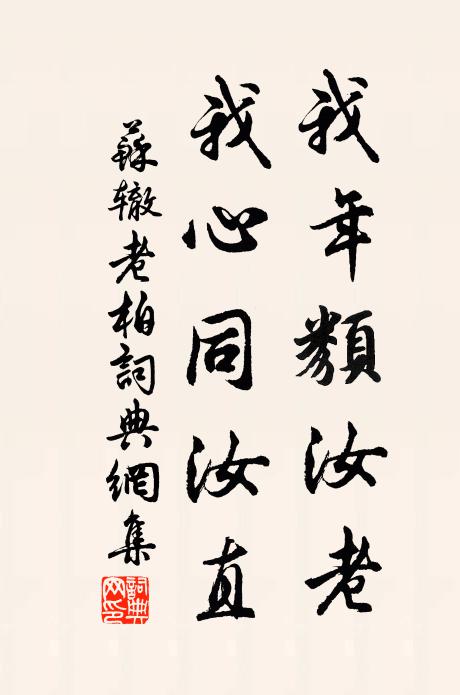 我年類汝老
我心同汝直
蘇辙老柏詞典網集
詞典网印